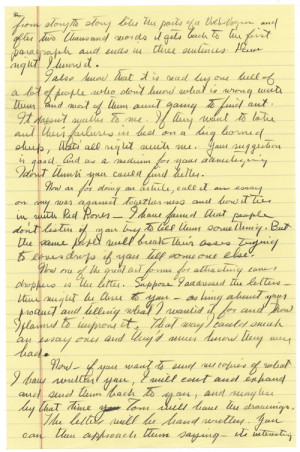 from story to story like the parts of a Volkswagen and
after two thousand words it gets back to the first
paragraph and ends in three sentences. Damn
right I know it.
I also know that it is read by one hell of
a lot of people who don't know what is wrong with
them and most of them aint going to find out.
It doesn't matter to me. If they want to take
out their failures in bed on a big horned
sheep, that's all right with me. Your suggestion
is good. And as a medium for your advertising
I don't think you could find better.
Now as for doing an article, call it an essay
on my war against togetherness and how it ties
in with Red Power — I have found that people
don't listen if you try to tell them something. But
the same people will break their asses trying
to eavesdrop if you tell someone else.
Now one of the great art forms for attracting eaves
droppers is the letter. Suppose I addressed the letters —
there might be three to you — asking about your
product and telling what I wanted it for and how
I planned to improve it. That way I could sneak
an essay in and they'd never know they were
had.
Now — if you want to send me copies of what
I have written you, I will cut and expand
and send them back to you, and maybe
by that time Tom will have the drawings.
The letters will be hand written. You
can then approach them saying — its interesting